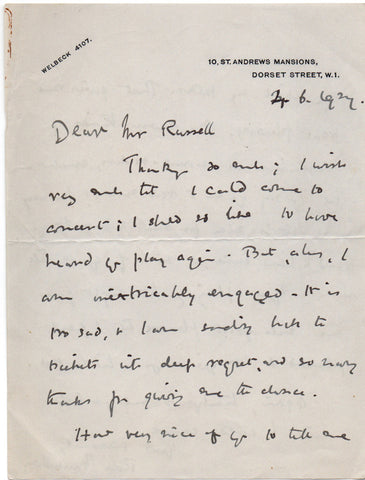 WELBECK 4107.
10, ST. ANDREWS MANSIONS,
DORSET STREET, W.1.
6. 1927.
Dear Mr Russell
Thanks so much; I wish
very much tht I could come to
concert; I shld so like to have
heard yo play again. But, alas, I
am inextricably engaged. It is
so sad, & I am sending back the
tickets with deep regret, and so many
thanks for giving me the chance.
How very nice of yo to tell me